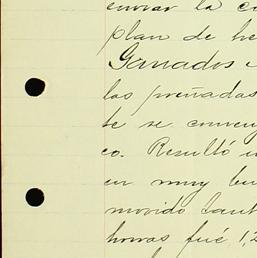 enviar la co
plan de he
Ganados
las preñadas
te se conven
co. Resultó
en muy bu
movido tant
horas fué 1,2